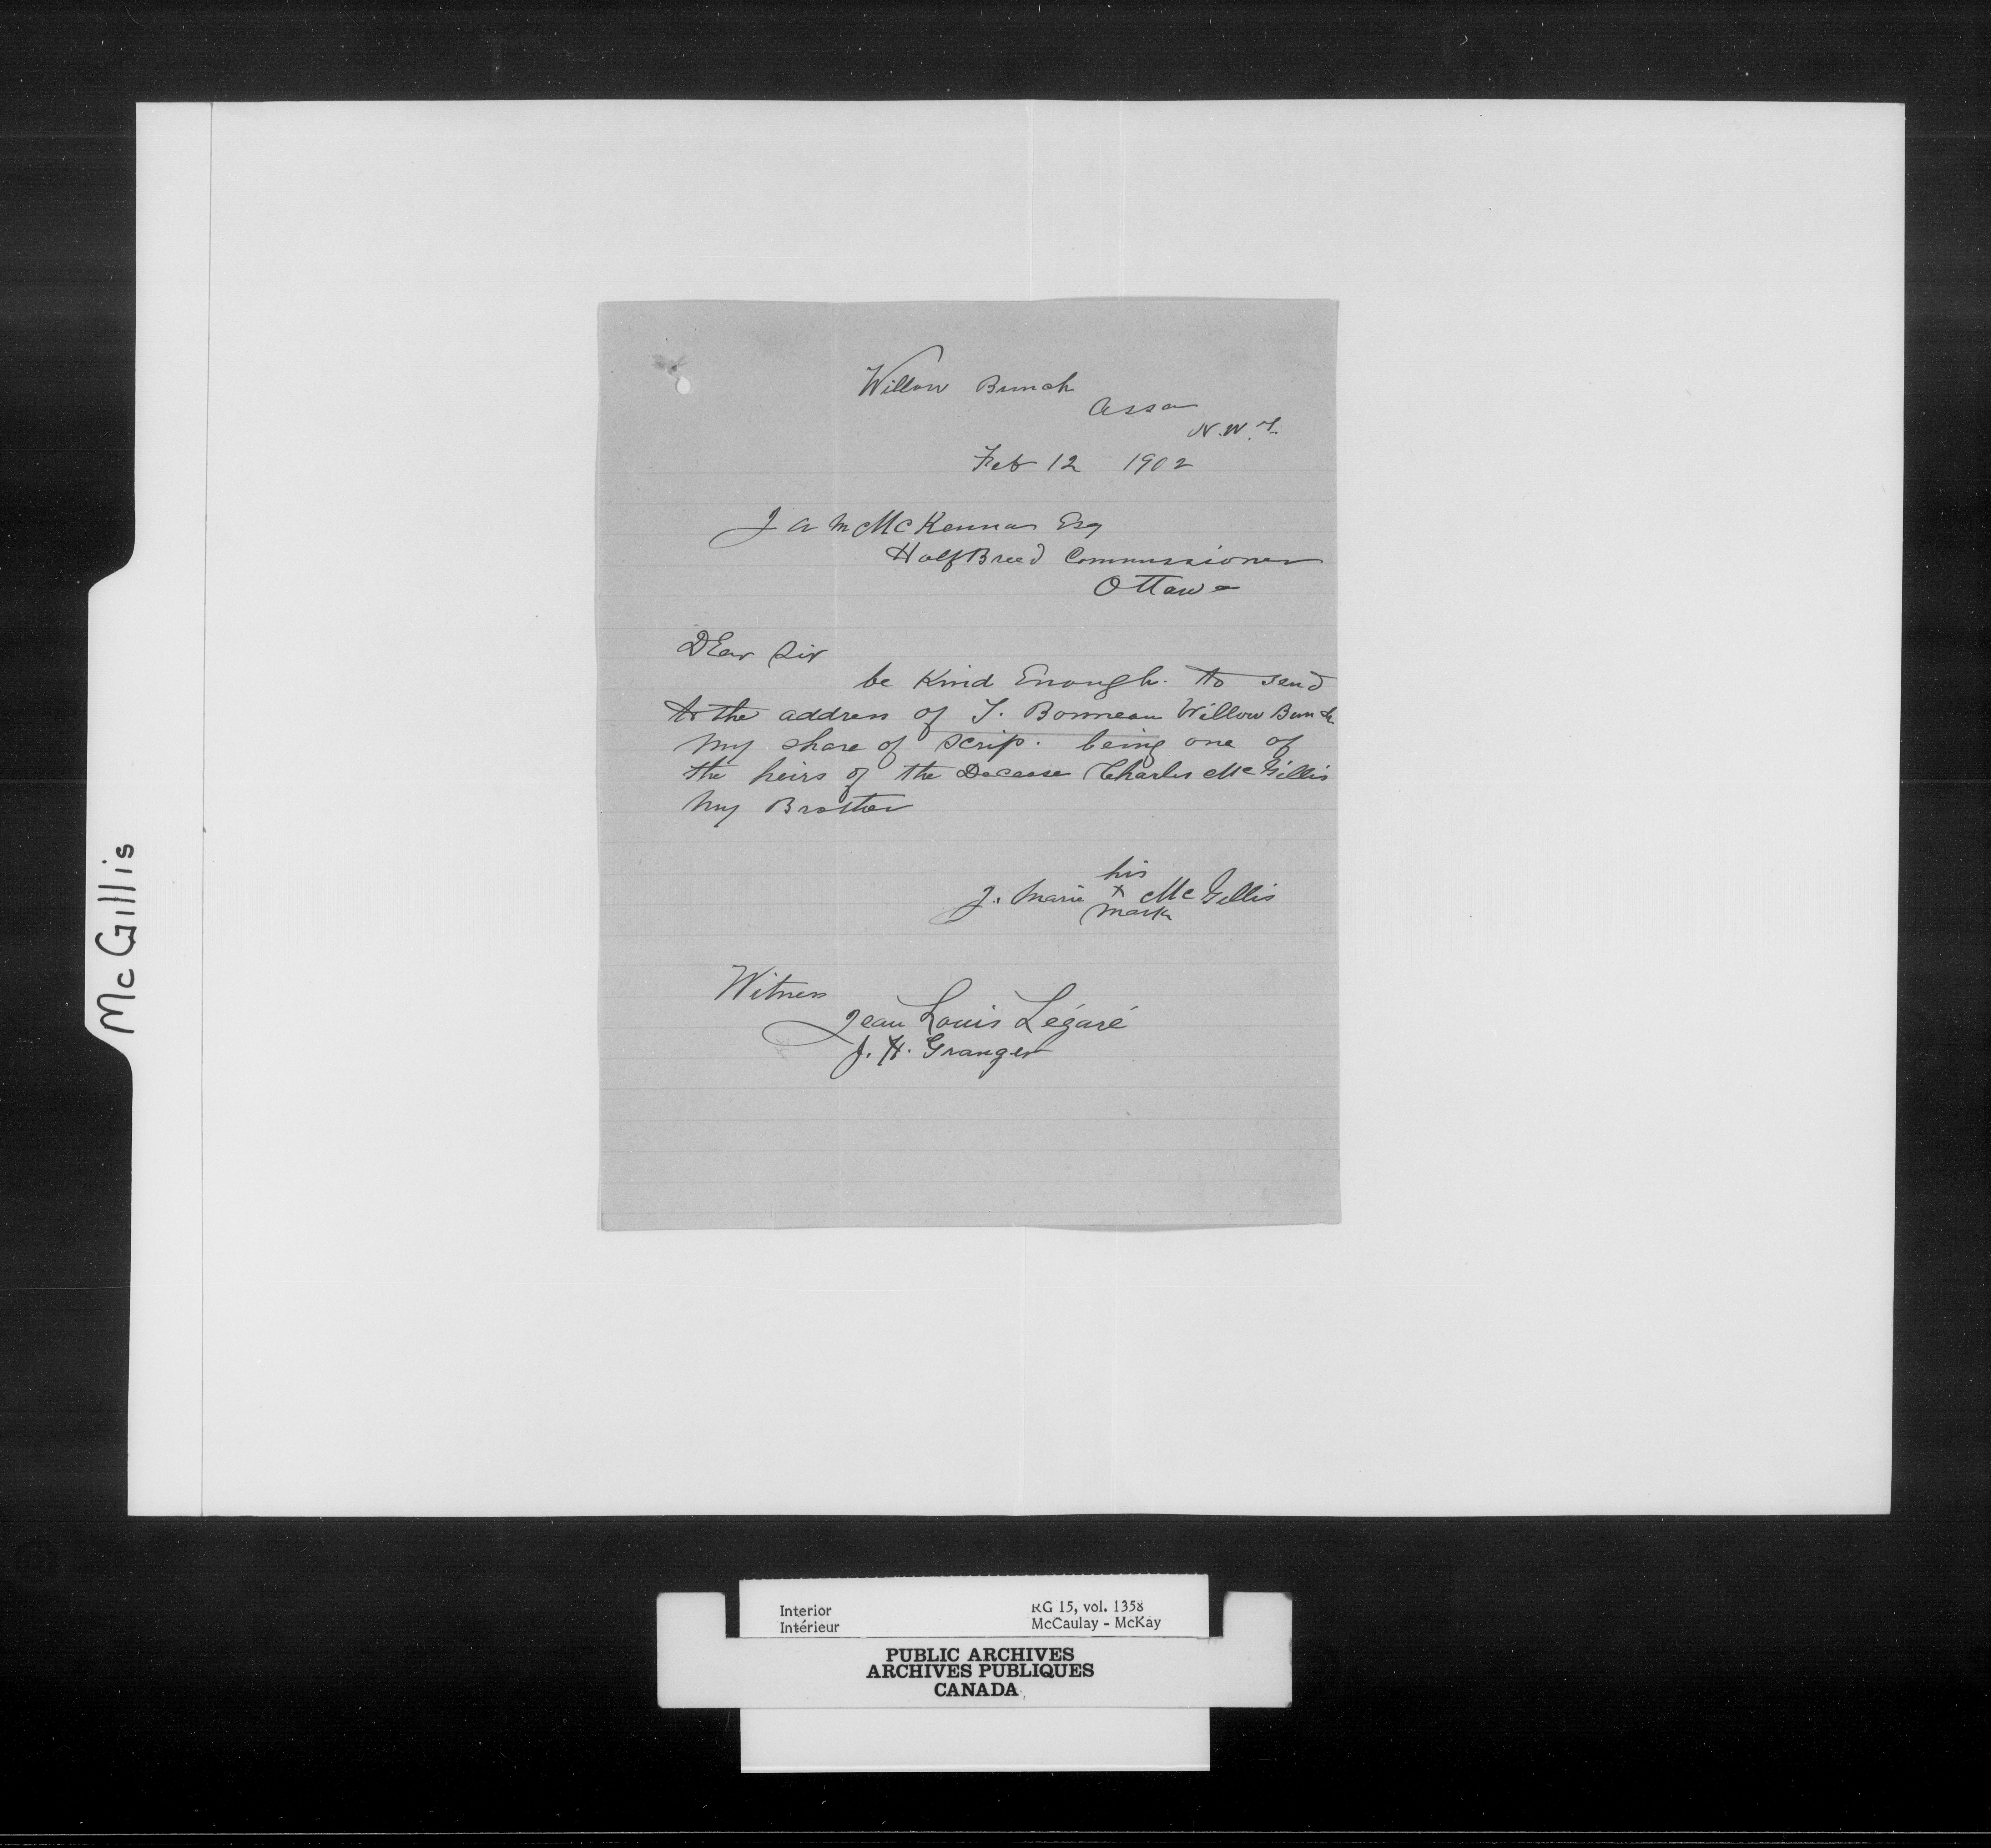 Willow Bunch
Assa
N.W.T.
Feb 12 1902
J A McKenna Esq
Half Breed Commissioner
Ottawa
DEar Sir
be Kind Enough. to send
to the address of T. Bonneau Willow Bunch
My share of scrip. being one of
the heirs of the Decease Charles McGillis
My Brother
his
J. Marie x McGillis
mark
Witness
Jean Louis Légaré
J. H. Granger
McGillis
Interior
Intérieur
RG 15, vol. 1358
McCaulay - McKay
PUBLIC ARCHIVES
ARCHIVES PUBLIQUES
CANADA